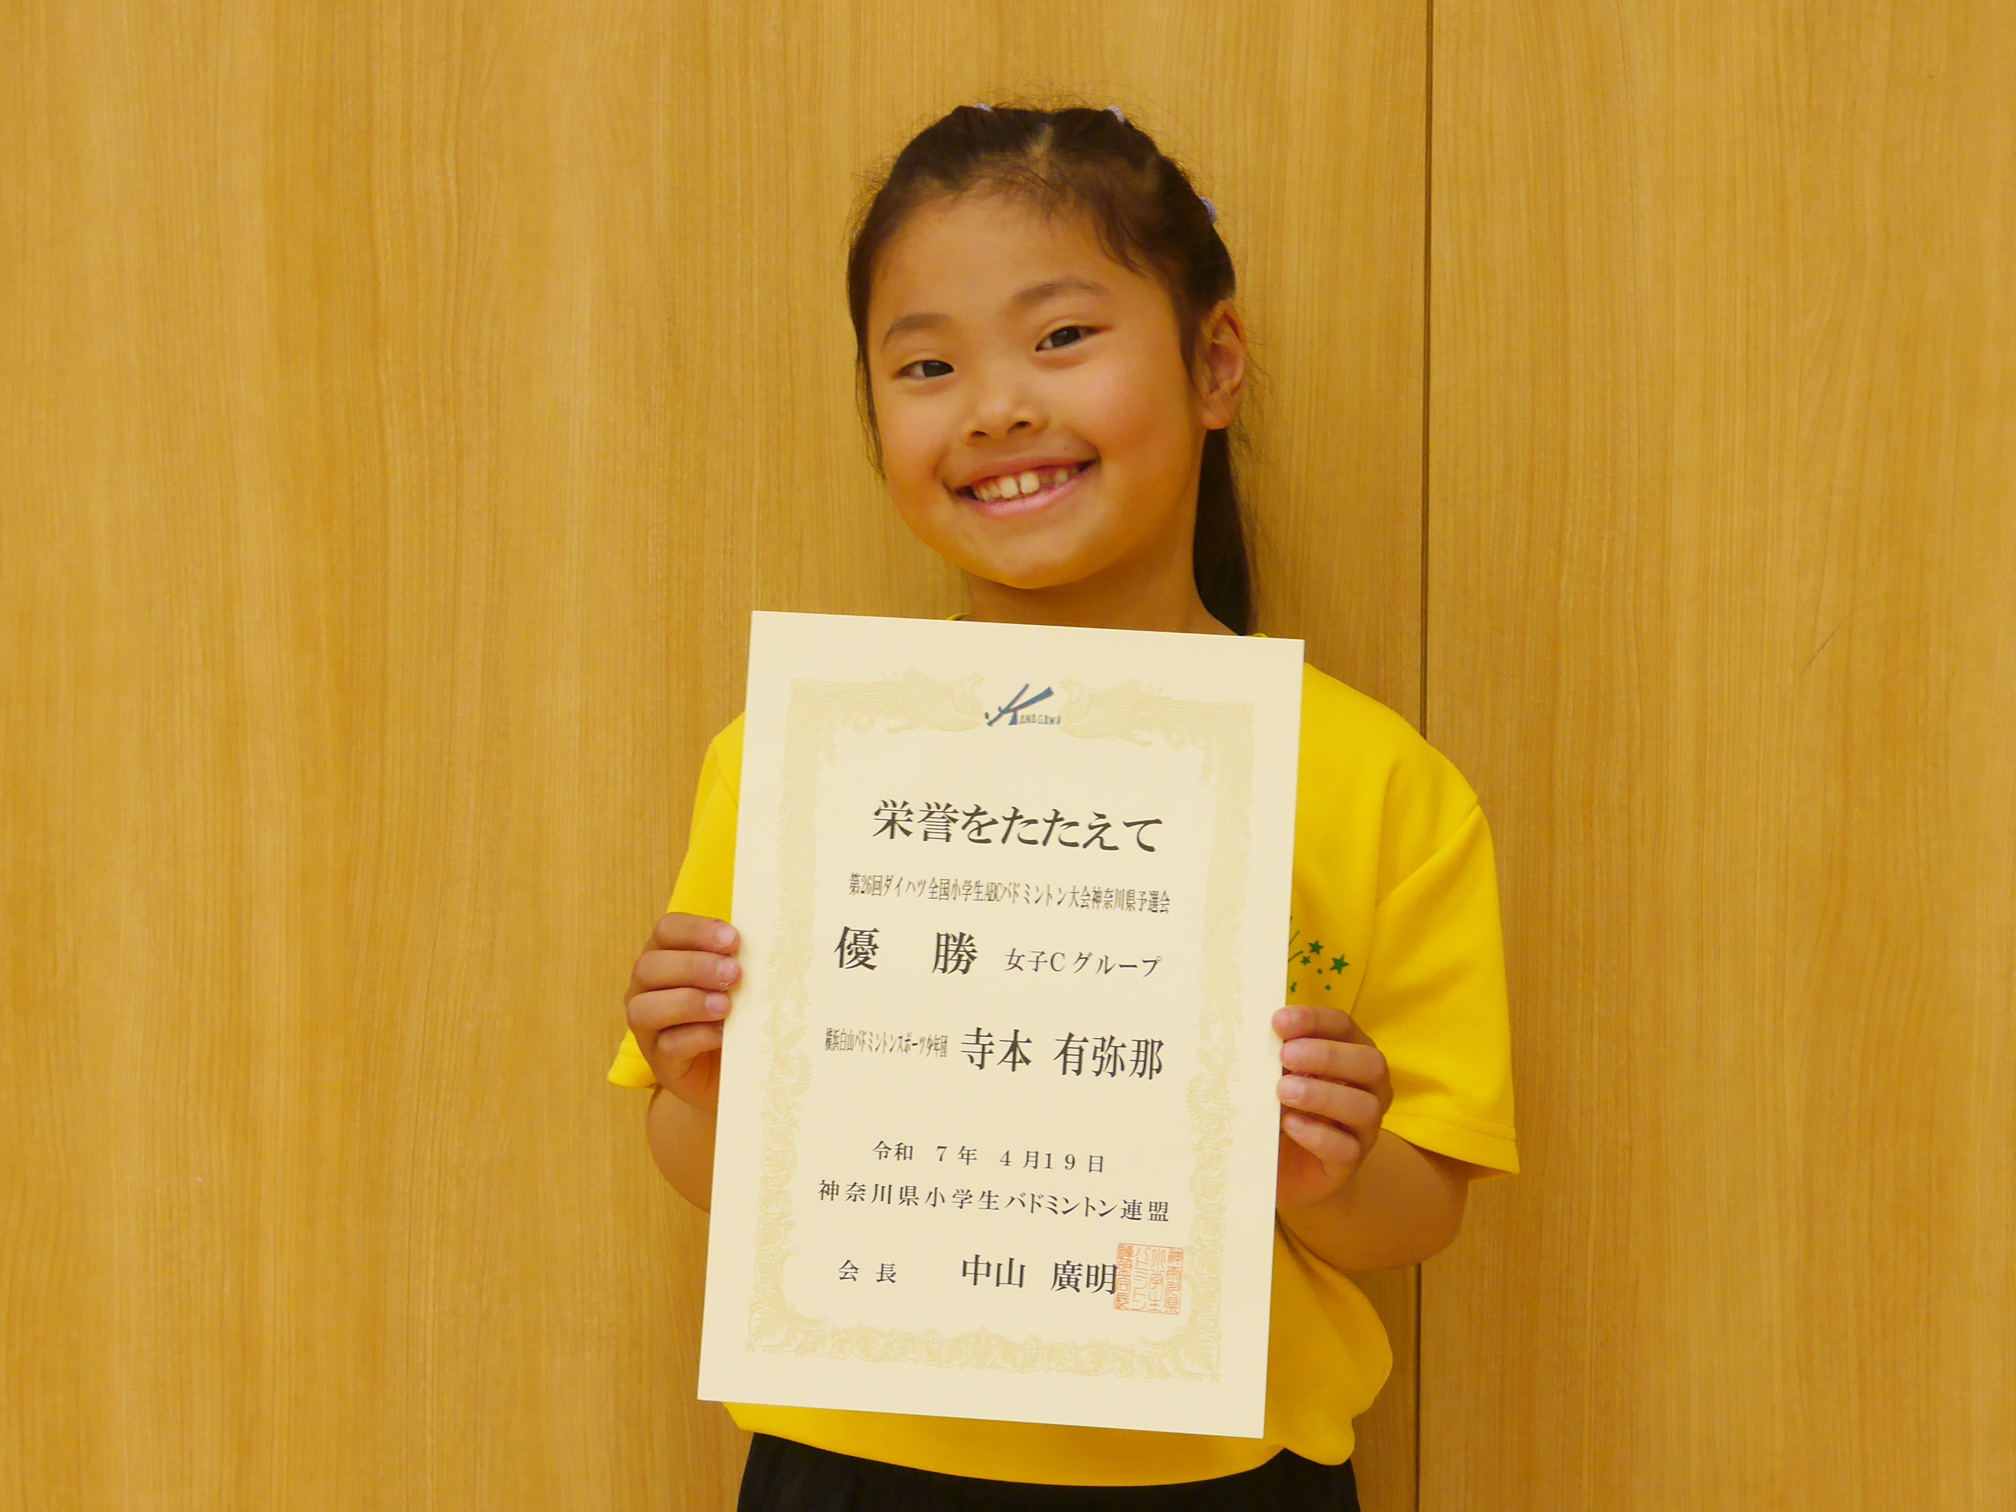 KANAGAWA
栄誉をたたえて
第26回ダイハツ全国小学生ABCバドミントン大会神奈川県予選会
優 勝 女子Cグループ
横浜白山バドミントンスポーツ少年団 寺本 有弥那
令和 7年 4月19日
神奈川県小学生バドミントン連盟
会長 中山 廣明